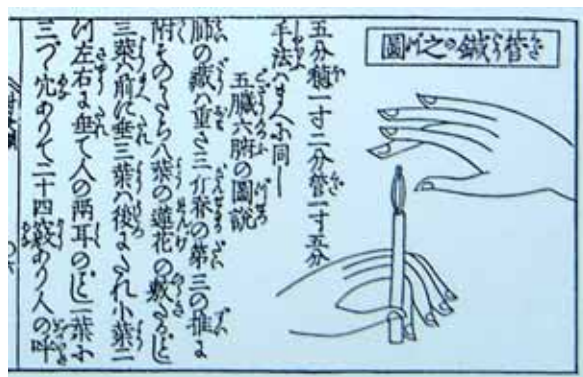 管鍼之圖
五分穂一寸二分管一寸五分
手法ハまへに同し
五臓六腑の圖説
肺の蔵ハ重さ三斤脊の第三の推に
附そのかたち八葉の蓮花の敷たるごとし
三葉ハ前に垂三葉ハ後にたれ小葉二
ツ左右に垂て人の両耳のごとし一葉に
三づゝ穴ありて二十四竅あり人の呼